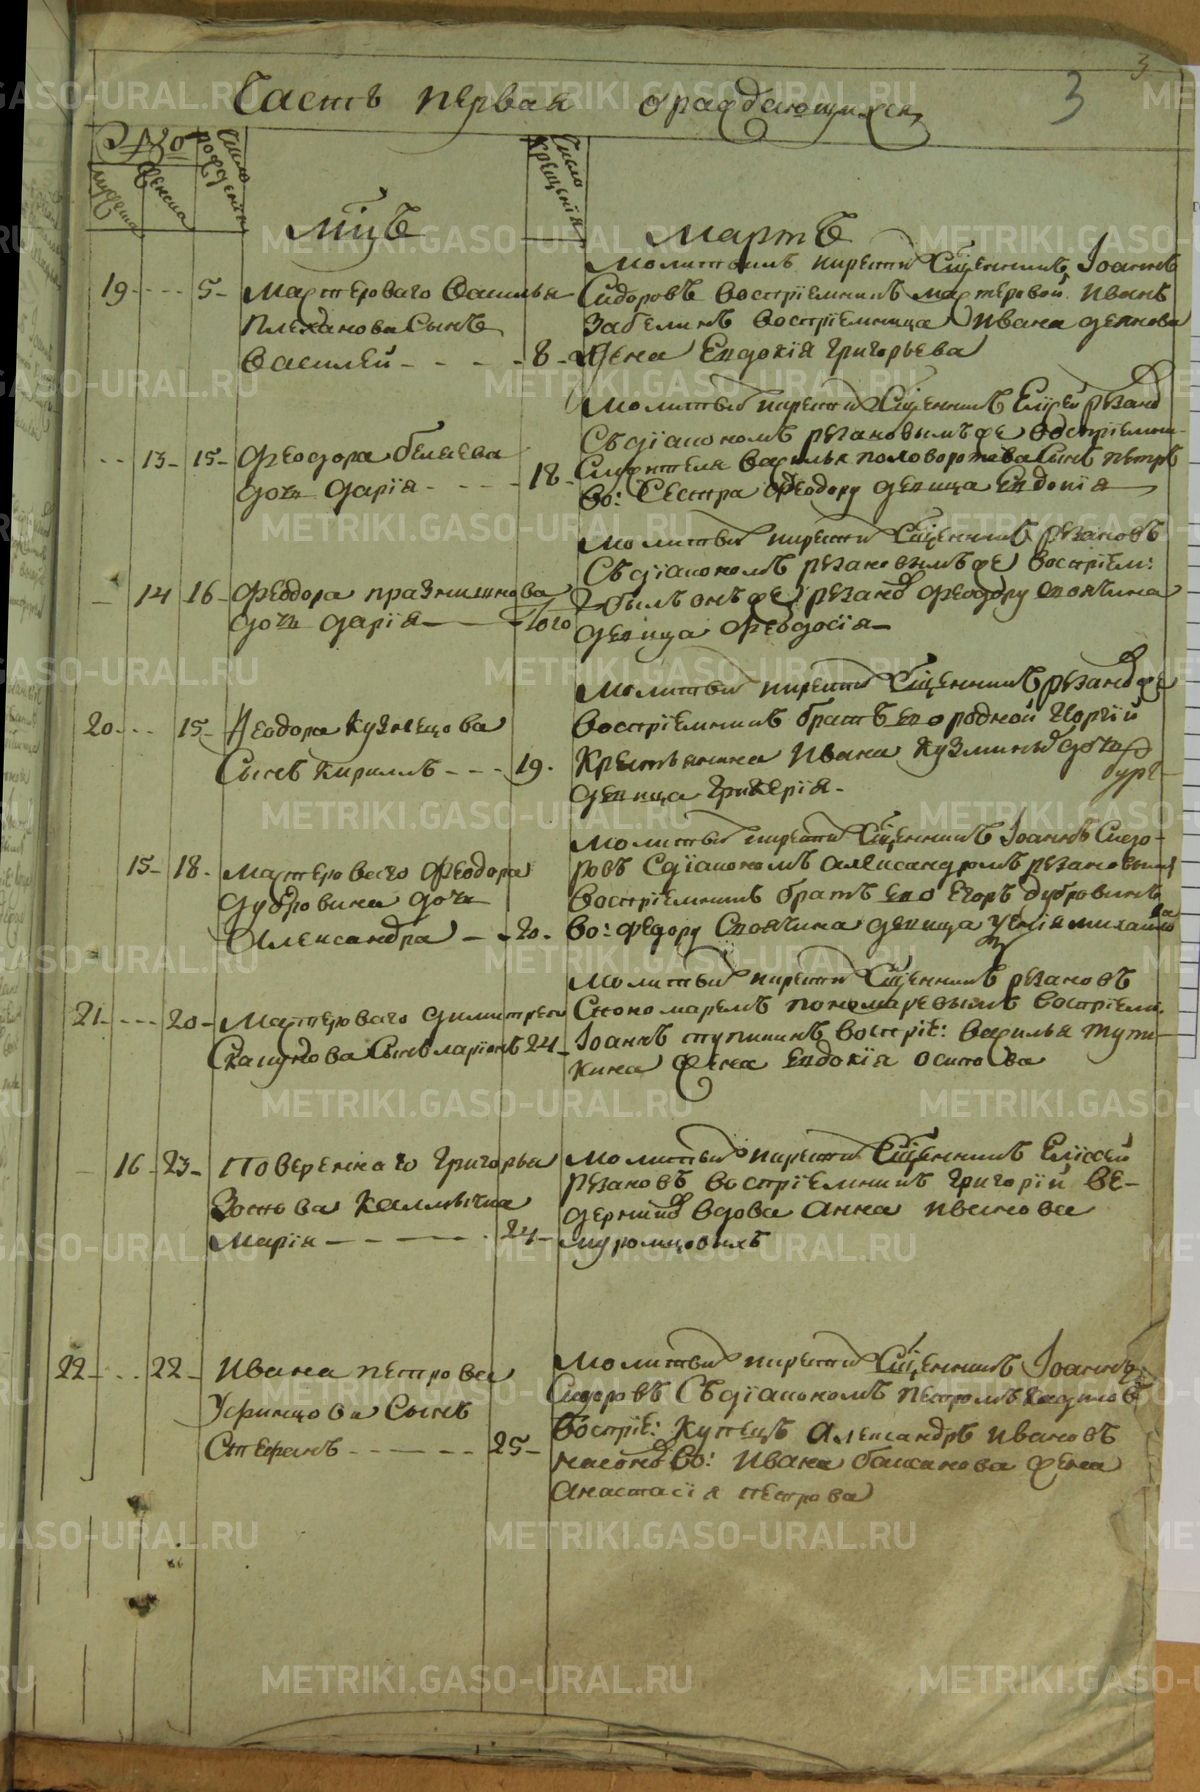 3
3
Часть первая о раждающихся
№
мужеска
женска
Число рожденія
Число крещенія
мцъ
мартъ
19 - - - 5 - Мастероваго Василья
Плеханова Сынъ
Василей - - - - 8 -
молитвилъ и крестилъ Сщенникъ Іоаннъ
Сидоровъ воспріемникъ мастеровой Иванъ
Забелинъ воспріемница Ивана
жена Евдокія Григорьева
- - 13 - 15 - Феодора Беляева
дочь Дарія - - - - 18 -
Молитвы и крести Сщенникъ Елісей Резано
Съ діакономъ Резановымъ же воспріемни
Служителя Василья Половоротова Сынъ Петръ
во: Сестра Феодору девица Евдокія
- 14 16 - Феодора Празнишнова
дочь Дарія - - - того
Молитвы и крести Сщенникъ Резановъ
Съ діакономъ Резановымъ же воспріем:
былъ онъ же Резано Феодору
девица Феодосія -
20 - - - 15 - Феодора Кузнецова
Сынъ Кирилъ - - - 19.
Молитвы и крести Сщенникъ Резано же
воспріемникъ братъ ево родной Георгій
Крестьянина Ивана Кузмина дочь
девица Гликерія -
15 - 18. Мастероваго Феодора
Дубровина дочь
Александра - - 20.
Молитвы и крести Сщенникъ Іоаннъ Сидо-
ровъ Сдіакономъ Александромъ Резановымъ
воспріемникъ братъ ево Егоръ Дубровинъ
во: Федору девица михаило
ва
21 - - - 20 - Мастероваго Димитрея
Скакунова Сынъ Ларіонъ 24 -
Молитвы и крести Сщенникъ Резановъ
Спономаремъ Пономаревымъ воспріемн.
Іоаннъ Тупикинъ воспріе: Василья Тупи-
кина жена Евдокія Осипова
- 16 - 23 - Повереннаго Григорья
Зотова Калмычка
Марія - - - - - 24 -
Молитвы и крести Сщенникъ Елісей
Резановъ воспріемникъ Григорій Ве-
дерник вдова Анна Иванова
Муромцовыхъ
22 - . . 22 - Ивана Петрова
Усринцова Сынъ
Стефанъ - - - - - 25 -
Молитвы и крести Сщенникъ Іоаннъ
Сидоровъ Съ діакономъ Петромъ Кадиловъ
воспріе: Купецъ Александръ Ивановъ
во: Ивана Баланова жена
Анастасія Петрова